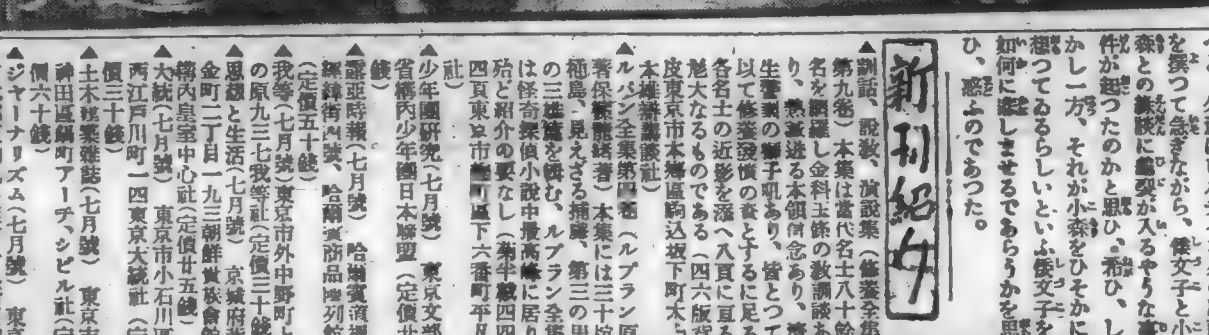 を撰つて急ぎながら、倭文子と小
森との縁談に龜裂が入るやうな
件が起つたのかと思ひ、希ひ、し
かし一方、それが小森をひそかに
想つてゐるらしいといふ倭文子と
如何に悲しませるであらうかを思
ひ、惑ふのであつた。
新刊紹介
▲訓話、說敎、演說集（修養全集
第九卷）本集は當代名士八十餘
名を網羅し金科玉條の敎訓談あ
り、熱誠迸る本領信念あり、
生警世の獅子吼あり、皆とつて
以て修養發憤の資とするに足る
各名士の近影を添へ八頁に亘る
尨大なるものである（四六版背
皮東京市本鄕區駒込坂下町大
本雄辯講談社）
▲ルパン全集第四卷（ルブラン原
著保篠龍緖著）本集には三十棺
桶島、見えざる捕虜、第三の男
の三雄篇を收む、ルブラン全集
は怪奇探偵小說中最高峰に居り
殆ど紹介の要なし（菊半載四四
四頁東京市麴町區下六番町平凡
社）
▲少年團硏究（七月號）東京文部
省構內少年團日本聯盟（定價廿
錢）
▲露亞時報（七月號）哈爾賓道裡
輝緯街四號、哈爾賓商品陳列館
（定價五十錢）
▲我等（七月號）東京市外中野町上
の原九三七我等社（定價三十錢
▲思想と生活（七月號）京城府
金町二丁目一九三朝鮮貴族會館
構內皇室中心社（定價廿五錢）
▲大統（七月號）東京市小石川區
西江戶川町一四東京大統社（定
價三十錢）
▲土木建築雜誌（七月號）東京市
神田區錦町アーチ、シビル社（定
價六十錢）
▲ジヤーナリズム（七月號）東京